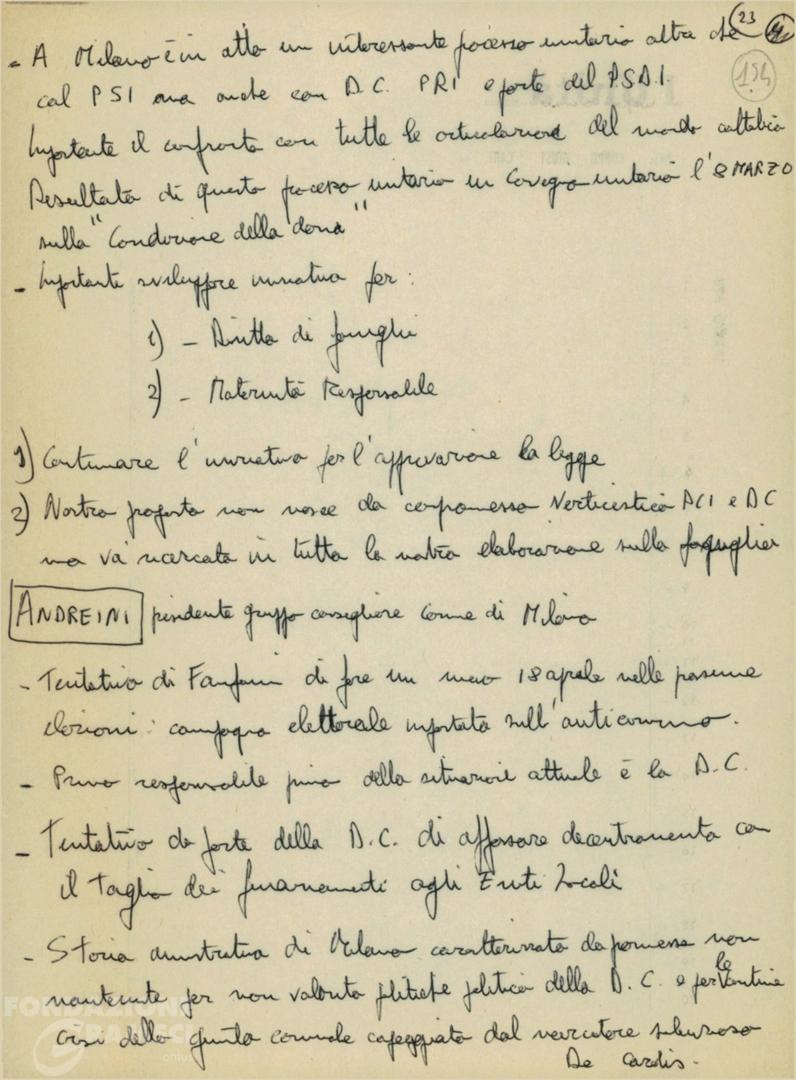 23
154
- A Milano è in atto un interessante processo unitario oltre che
col PSI ma anche con D.C. PRI e parte del P.S.D.I.
Importante il confronto con tutte le articolazioni del mondo cattolico
Resultato di questo processo unitario un Covegno unitario l'8 MARZO
sulla "Condizione della dona"
- Importante sviluppare iniziativa per:
1) - Diritto di famiglia
2) - Maternità Responsabile
1) Continuare l'iniziativa per l'approvazione la legge
2) Nostra proposta non nasce da compromesso verticistico PCI e DC
ma va ricercata in tutta la nostra elaborazione sulla famiglia
ANDREINI presidente gruppo consigliere comune di Milano
- Tentativo di Fanfani di fare un nuovo 18 aprile nelle prossime
elezioni: campagna elettorale impostata sull'anticomunismo.
- Primo responsabile primo della situazione attuale è la D.C.
- Tentativo da parte della D.C. di affossare decentramento con
il taglio dei finanziamenti agli Enti Locali
- Storia di Milano caratterizzata da promesse non
mantenute per non volontà politica della D.C. e per le continue
crisi della giunta comunale capeggiata dal
De Carolis.
FONDAZIONE
GRAMSCI
onlus